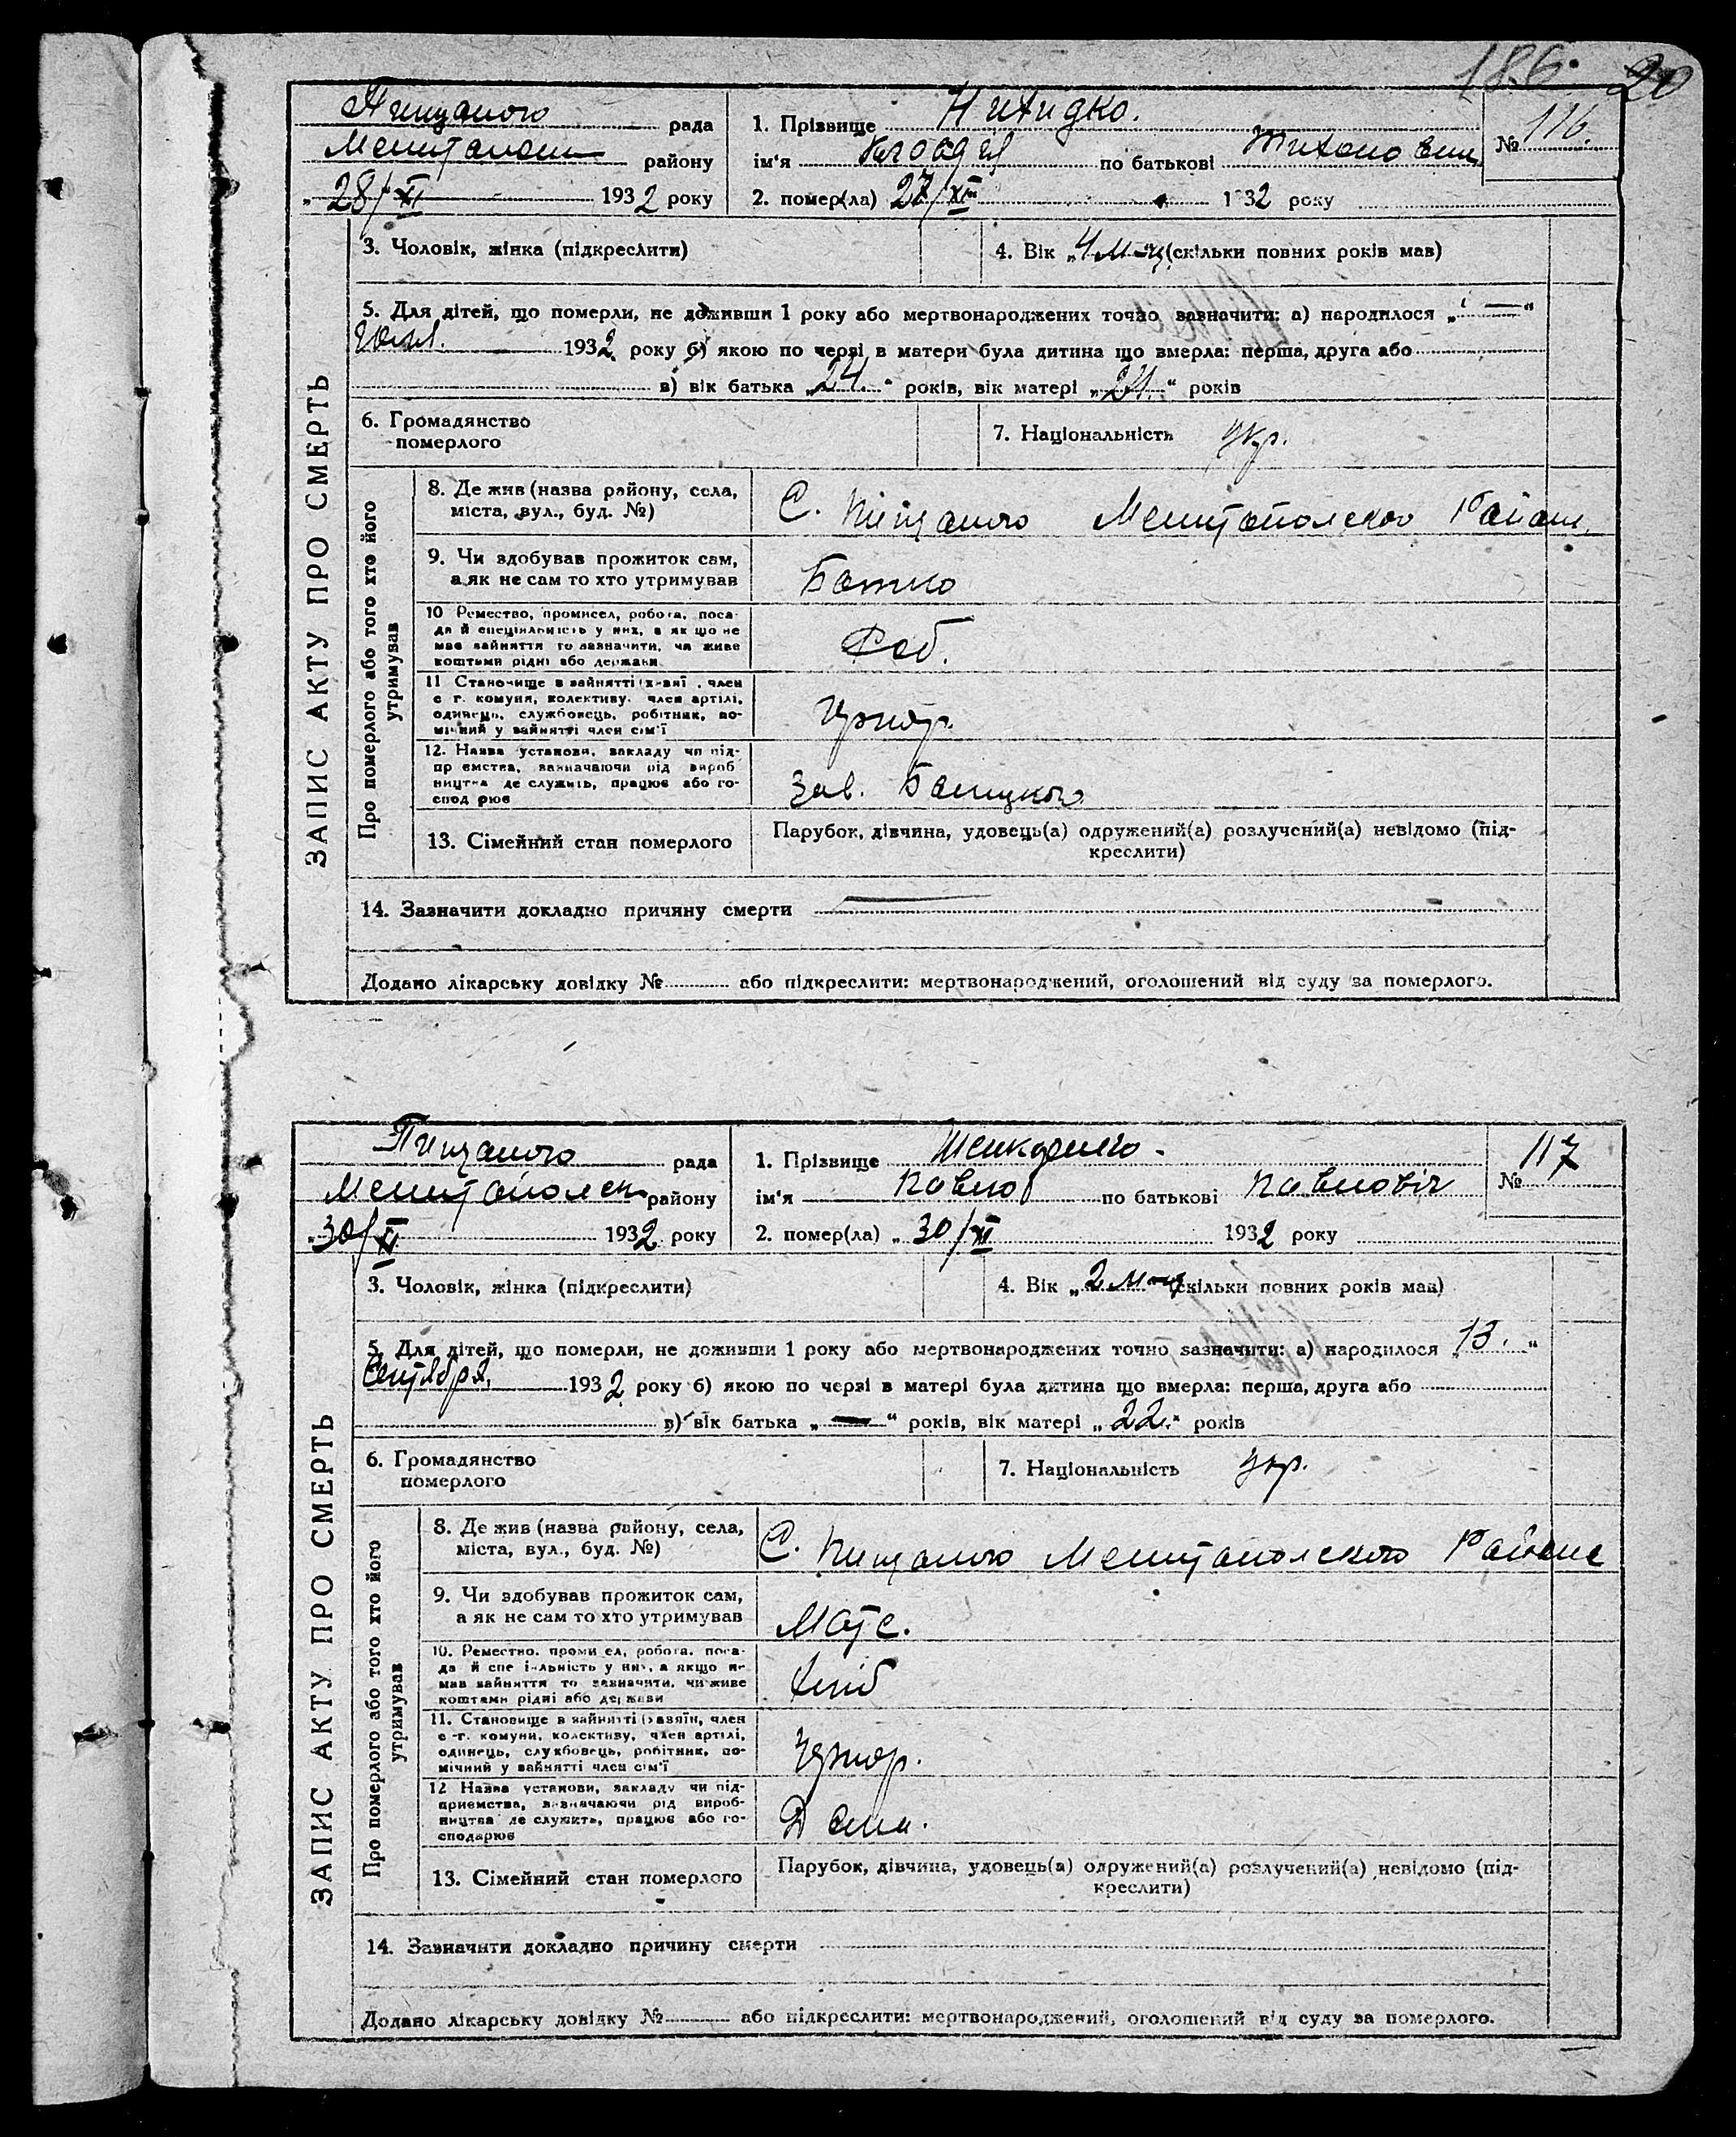 186. 20
рада
району
28/XI 1932 року
1. Прізвище
ім'я по батькові
№ 116.
2. помер(ла) 27/XI 1932 року
ЗАПИС АКТУ ПРО СМЕРТЬ
3. Чоловік, жінка (підкреслити)
4. Вік „4 м-ц (скільки повних років мав)
5. Для дітей, що померли, не доживши 1 року або мертвонароджених точно зазначити: а) народилося „ — “
1932 року б) якою по черзі в матери була дитина що вмерла: перша, друга або
в) вік батька „24.“ років, вік матері „21.“ років
6. Громадянство
померлого
7. Національність укр.
Про померлого або того хто його
утримував
8. Де жив (назва району, села,
міста, вул., буд. №)
С. Райони
9. Чи здобував прожиток сам,
а як не сам то хто утримував
Батько
10 Ремество, промисел, робота, поса-
да й спеціяльність у них, а як що не
має зайняття то зазначити, чи живе
коштами рідні або держави
Роб.
11 Становище в зайнятті (х-зяї , член
с г. комуни, колективу, член артілі,
одинець, службовець, робітник, по-
мічний у зайнятті член сім'ї
12. Назва установи, закладу чи під-
пр ємства, зазначаючи рід вироб
ництва де служить, працює або го-
спод рює
Зав.
13. Сімейний стан померлого
Парубок, дівчина, удовець(а) одружений(а) розлучений(а) невідомо (під-
креслити)
14. Зазначити докладно причину смерти —
Додано лікарську довідку № або підкреслити: мертвонароджений, оголошений від суду за померлого.
рада
району
30/XI 1932 року
1. Прізвище
ім'я Павло по батькові Павловіч
№ 117
2. помер(ла) „ 30/XI 1932 року
ЗАПИС АКТУ ПРО СМЕРТЬ
3. Чоловік, жінка (підкреслити)
4. Вік „2 м-ц скільки повних років мав)
5. Для дітей, що померли, не доживши 1 року або мертвонароджених точно зазначити: а) народилося „13.“
Сентября, 1932 року б) якою по черзі в матері була дитина що вмерла: перша, друга або
в) вік батька „ — “ років, вік матері „22.“ років
6. Громадянство
померлого
7. Національність укр.
Про померлого або того хто його
утримував
8. Де жив (назва району, села,
міста, вул., буд. №)
С.
9. Чи здобував прожиток сам,
а як не сам то хто утримував
10. Ремество, проми ел, робота, поса-
да й спе і-льність у них, а якщо не
мав зайняття то зазначити, чи живе
коштами рідні або держави
11. Становище в зайнятті (хазяїн, член
с-г. комуни, колективу, член артілі,
одинець, службовець, робітник, по-
мічний у зайнятті член сім'ї
12 Назва установи, закладу чи під-
приємства, зазначаючи рід вироб-
ництва де служить, працює або го-
сподарює
13. Сімейний стан померлого
Парубок, дівчина, удовець(а) одружений(а) розлучений(а) невідомо (під-
креслити)
14. Зазначити докладно причину смерти
Додано лікарську довідку № або підкреслити: мертвонароджений, оголошений від суду за померлого.